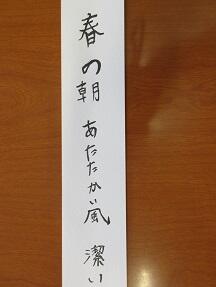 春の朝 あたたかい風 潔い